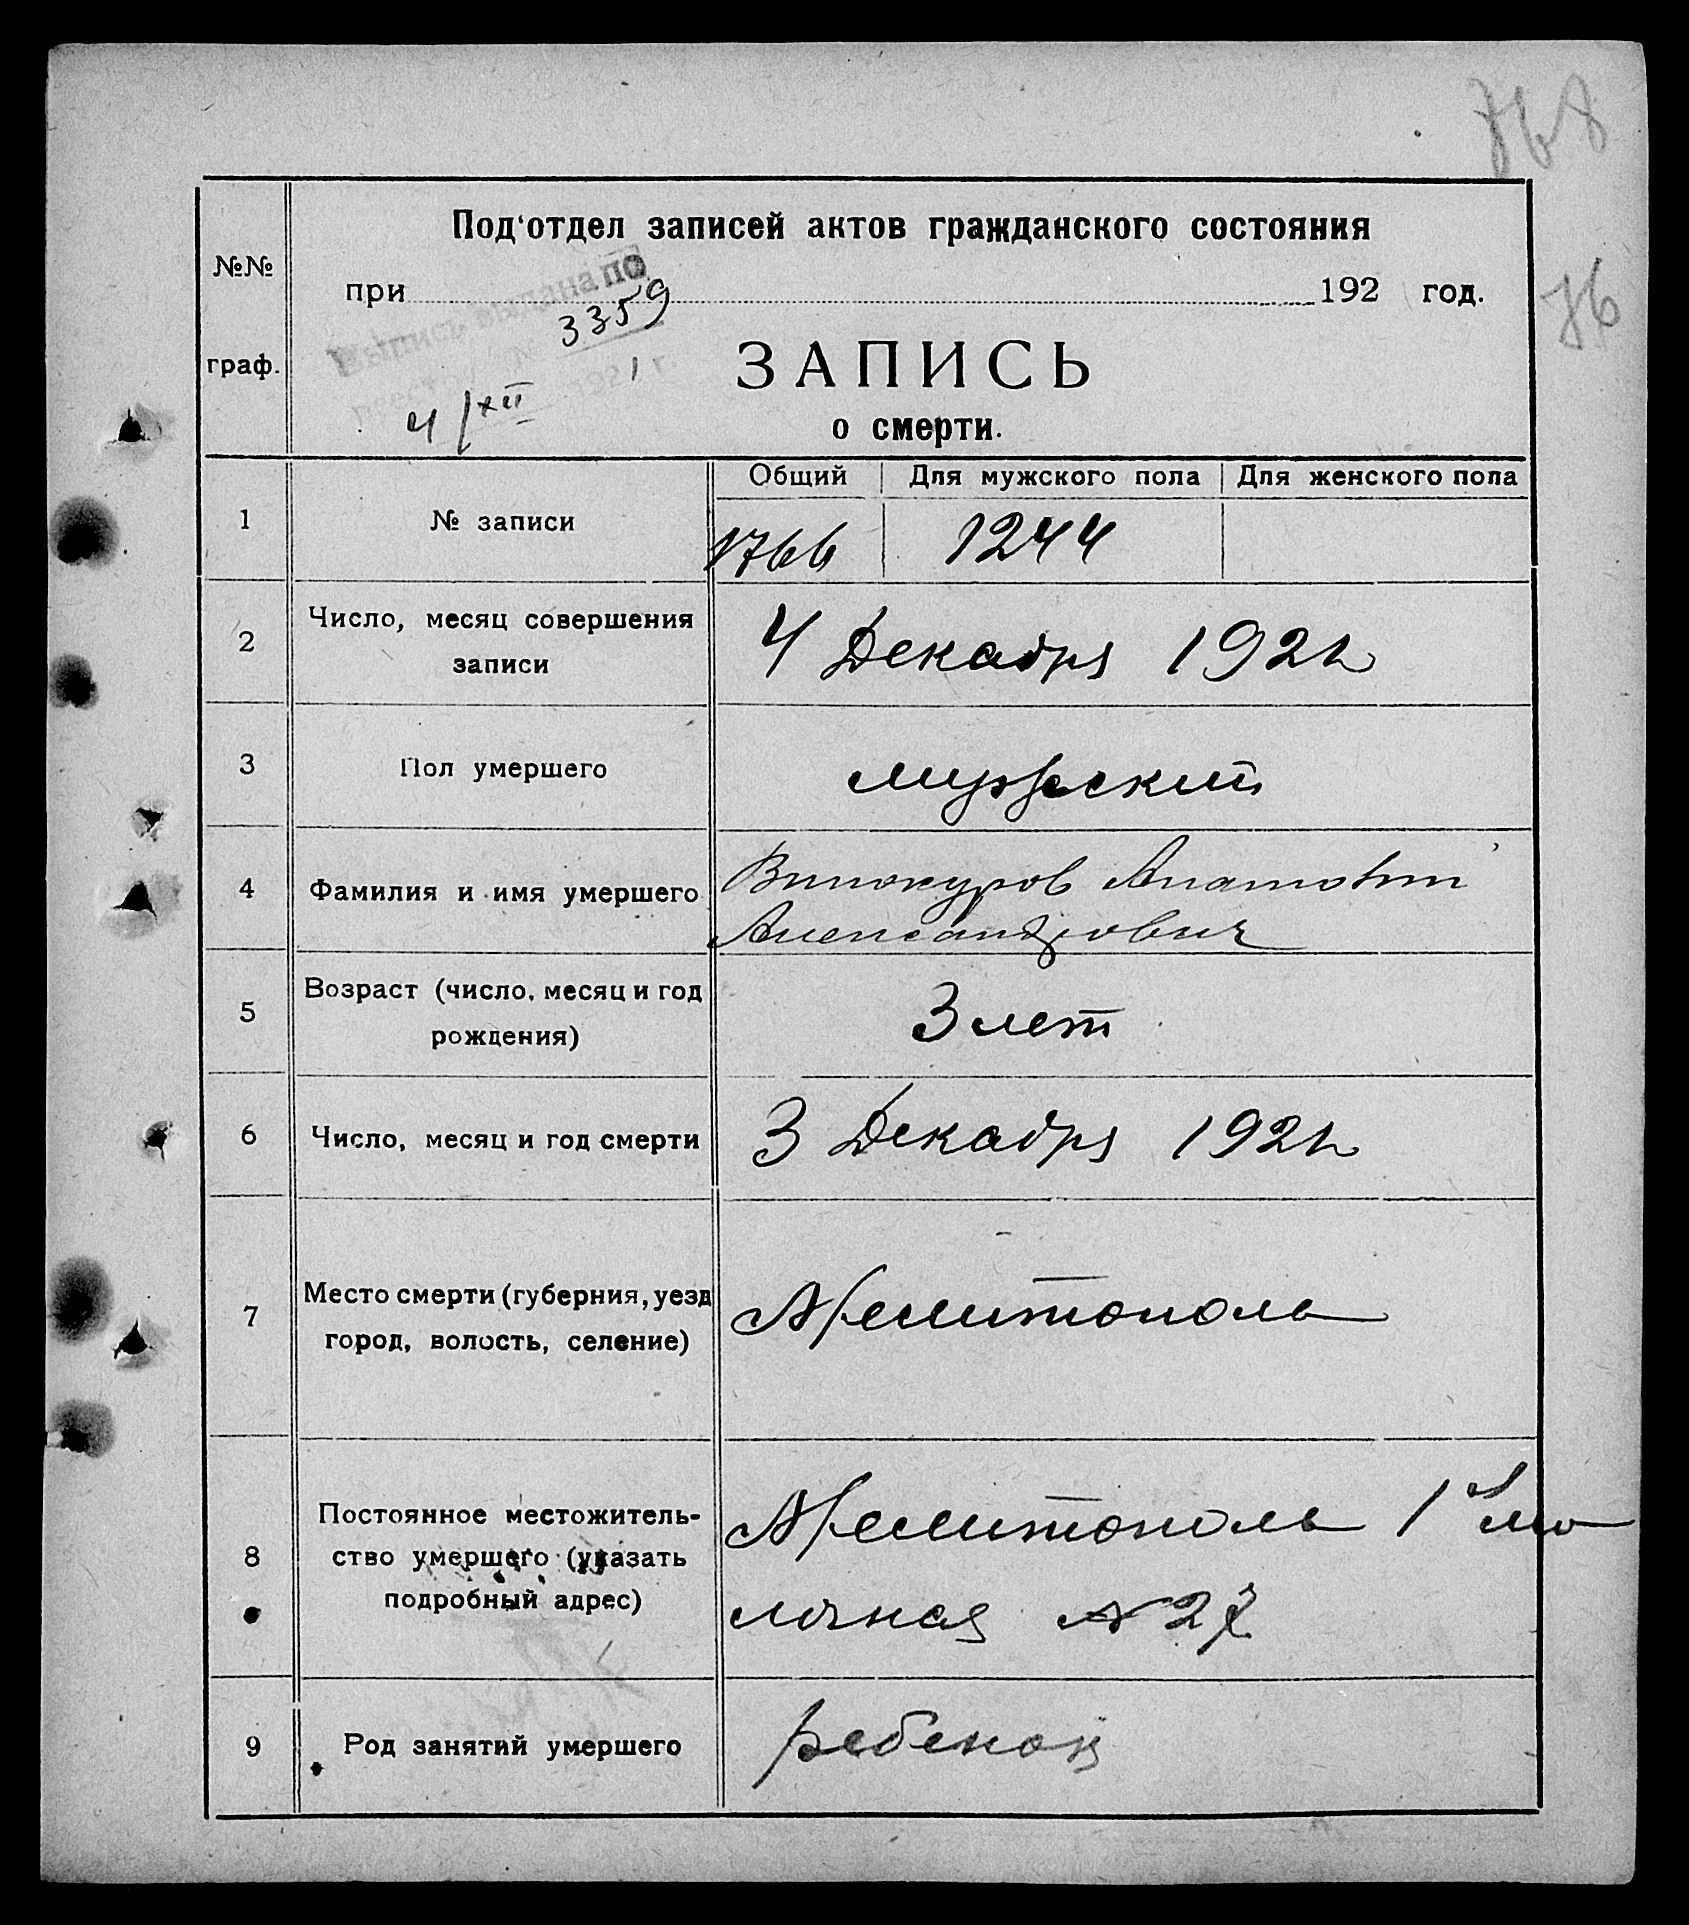 768
76
№№
граф.
Под'отдел записей актов гражданского состояния
при 192 год.
Выпись выдана по
реестру № 3359
4/XII 1921 г.
ЗАПИСЬ
о смерти.
Общий Для мужского пола Для женского пола
1 № записи 1766 1244
2 Число, месяц совершения
записи
4 Декабря 1921
3 Пол умершего мужеский
4 Фамилия и имя умершего Винокуров Анатолий
Александрович
5 Возраст (число, месяц и год
рождения)
3 лет
6 Число, месяц и год смерти 3 Декабря 1921
7 Место смерти (губерния, уезд
город, волость, селение)
Мелитополь
8 Постоянное местожитель-
ство умершего (указать
подробный адрес)
Мелитополь 1
№ 27
9 Род занятий умершего ребенок